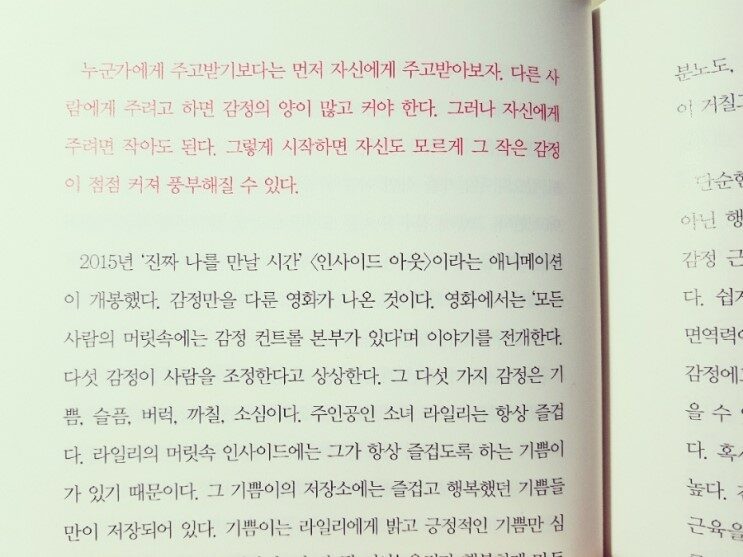 누군가에게 주고받기보다는 먼저 자신에게 주고받아보자. 다른 사
람에게 주려고 하면 감정의 양이 많고 커야 한다. 그러나 자신에게
주려면 작아도 된다. 그렇게 시작하면 자신도 모르게 그 작은 감정
이 점점 커져 풍부해질 수 있다.
2015년 ‘진짜 나를 만날 시간’ 〈인사이드 아웃〉이라는 애니메이션
이 개봉했다. 감정만을 다룬 영화가 나온 것이다. 영화에서는 ‘모든
사람의 머릿속에는 감정 컨트롤 본부가 있다’며 이야기를 전개한다.
다섯 감정이 사람을 조정한다고 상상한다. 그 다섯 가지 감정은 기
쁨, 슬픔, 버럭, 까칠, 소심이다. 주인공인 소녀 라일리는 항상 즐겁
다. 라일리의 머릿속 인사이드에는 그가 항상 즐겁도록 하는 기쁨이
가 있기 때문이다. 그 기쁨이의 저장소에는 즐겁고 행복했던 기쁨들
만이 저장되어 있다. 기쁨이는 라일리에게 밝고 긍정적인 기쁨만 심
분노도,
이 거칠
단순한
아닌 행
감정 근
다. 쉽게
면역력이
감정에
을 수
다. 혹
높다.
근육을